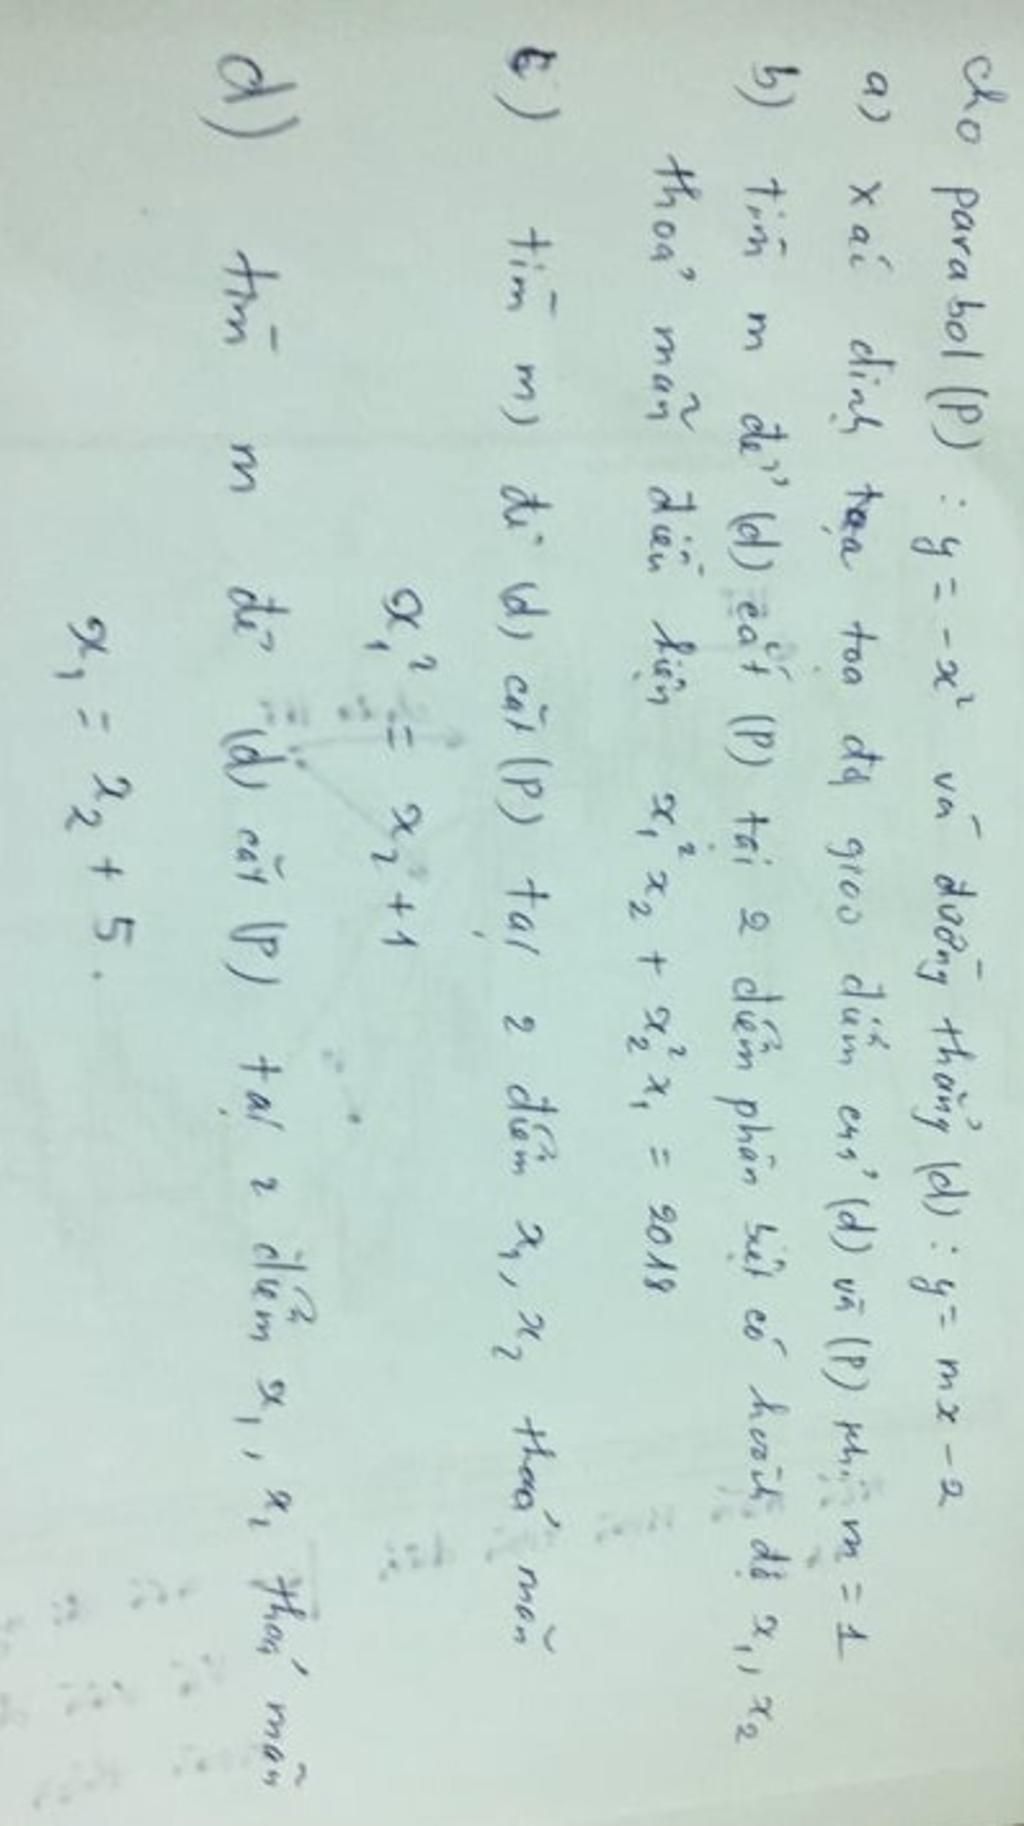 cho parabol (P) : y = -x² và đường thẳng (d) : y = mx - 2
a) xác định tọa toạ độ giao điểm của (d) và (P) khi m = 1
b) tìm m để (d) cắt (P) tại 2 điểm phân biệt có hoành độ x₁, x₂
thoả mãn điều kiện x₁²x₂ + x₂²x₁ = 2018
c) tìm m) để (d) cắt (P) tại 2 điểm x₁, x₂ thoả mãn
x₁² = x₂ + 1
d) tìm m để (d) cắt (P) tại 2 điểm x₁, x₂ thoả mãn
x₁ = x₂ + 5.